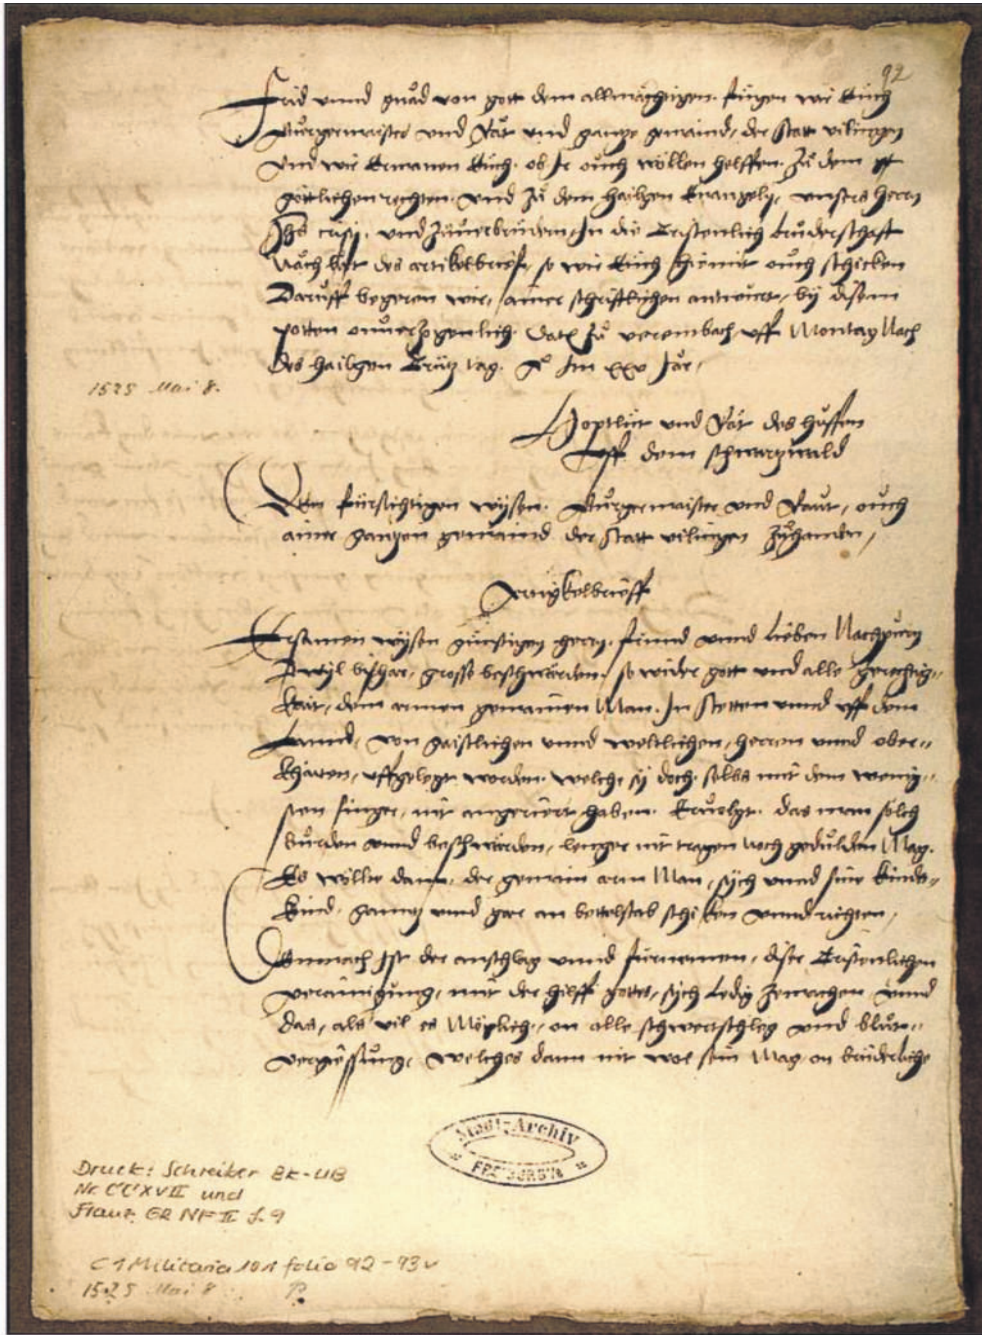 92
Frid unnd gnad von gott dem allmächtigen. fügen wir Euch
Burgermaister und Rät und gantze gemaind, der Statt vilingen
und wir Ermanen Euch. ob Ir ouch wöllen helffen. Zu dem
göttlichen rechten. und zu dem hailgen Evangely. unsers herrn
Ihs cristi. und In die Cristenlich bruderschafft
Nach lut des artikelbriefs, so wir Euch hiemit ouch schicken
Daruff begeren wir, ainer schrifftlichen antwurt, by disem
potten onverzogenlich. Datum zu verembach uff Montag Nach
des hailgen Crütz tag. Im xxv Jar,
1525 Mai 8.
Hoptlüt und Rät des huffen
uff dem schwartzwald
Den fürsichtigen wysen. Burgermaister und Raut, ouch
ainer gantzen gemaind der Statt vilingen zuhanden,
Artykelbrieff
Ersamen wysen günstigen herrn. fründ unnd lieben Nachpurn
Dwyl bißhar, grosse beschwärden, so wider gott und alle gerechtig-
kait, dem armen gemainen Man. In Stetten unnd uff dem
Lannd, von gaistlichen unnd weltlichen, herren unnd ober-
khaiten, uffgelegt worden. welche sy doch selbs mit dem wenig-
sten finger, nit angeriert haben. Ervolgt. das man solch
burden unnd beschwärden, lenger nit tragen noch gedulden Mag.
Es wöllte dann, der gemain arm Man, sich unnd sine kinds-
kind. gantz unnd gar an bettelstab schicken unnd richten,
Demnach Ist der anschlag unnd fürnemen, diser Cristenlichen
verainigung, mit der hilff gottes, sich ledig zemachen unnd
das, als vil es Möglich, on alle schwertschleg und blut-
vergiessung, welches dann nit wol sein Mag, on brüderliche
Stadt-Archiv
FREIBURG i/B
Druck: Schreiber BK-UB
Nr. CCCXVII und
Franz GR NF II S. 9
C 1 Militaria 101 folio 92-93v
1525 Mai 8